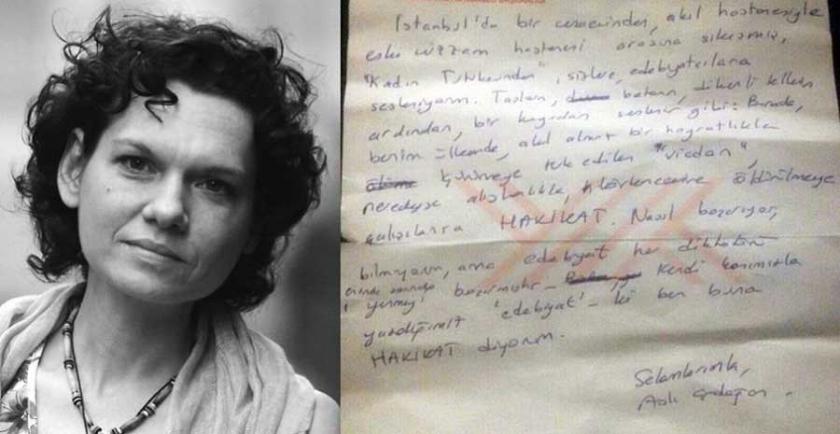 İstanbul'da bir cezaevinden, akıl hastanesiyle
eski cüzzam hastanesi arasına sıkışmış,
"Kadın Tutukevinden", sizlere, edebiyatçılara
sesleniyorum. Taştan, betona, dikenli tellerin
ardından, bir kuyudan seslenir gibi: Burada,
benim ülkemde, akıl almaz bir hoyratlıkla
çürümeye terk edilen "vicdan",
neredeyse alışkanlıkla, öldürülmeye
çalışılansa HAKİKAT. Nasıl başarıyor,
bilmiyorum, ama edebiyat her diktatörü
yenmeyi başarmıştır - kendi kanımızla
yazdığımız 'edebiyat' - ki ben buna
HAKİKAT diyorum.
Selamlarımla,
Aslı Erdoğan.